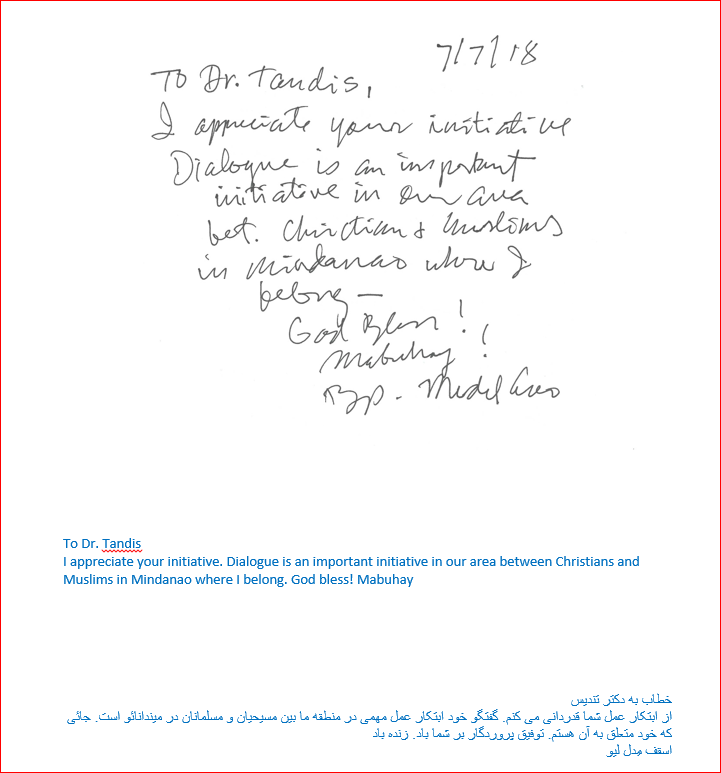 7/7/18
To Dr. Tandis,
I appreciate your initiative
Dialogue is an important
initiative in our area
bet. Christian & Muslims
in Mindanao where I
belong —
God Bless!
Mabuhay!
Bp. Medel
To Dr. Tandis
I appreciate your initiative. Dialogue is an important initiative in our area between Christians and
Muslims in Mindanao where I belong. God bless! Mabuhay
خطاب به دکتر تندیس
از ابتکار عمل شما قدردانی می کنم. گفتگو خود ابتکار عمل مهمی در منطقه ما بین مسیحیان و مسلمانان در میندانائو است. جائی
که خود متعلق به آن هستم. توفیق پروردگار بر شما باد. زنده باد
اسقف مِدل لیو